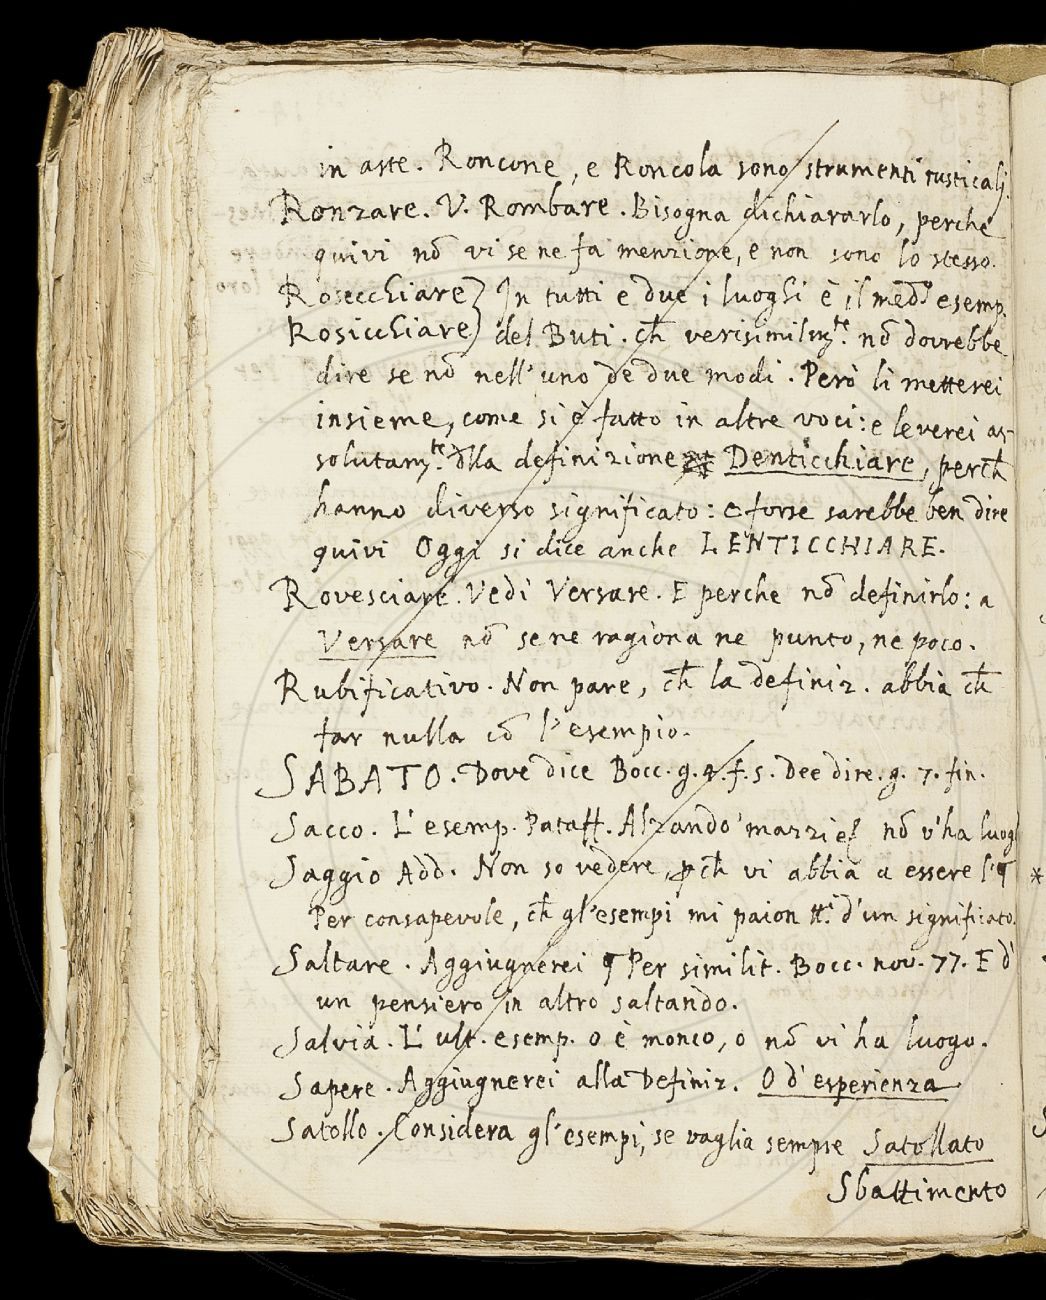 in aste. Roncone, e Roncola sono strumenti rusticali.
Ronzare. V. Rombare. Bisogna dichiararlo, perche
quivi nō vi se ne fa menzione, e non sono lo stesso.
Rosecchiare} In tutti e due i luoghi è il med.º esemp.
Rosicchiare} del Buti. ch̄ verisimilm.te nō dovrebbe
dire se nō nell'uno de due modi. Però li metterei
insieme, come si è fatto in altre voci: e leverei as-
solutam.te dlla definizione Denticchiare, perch̄
hanno diverso significato: e forse sarebbe ben dire
quivi Oggi si dice anche LENTICCHIARE.
Rovesciare. Vedi Versare. E perche nō definirlo: a
Versare nō se ne ragiona ne punto, ne poco.
Rubificativo. Non pare, ch̄ la definiz. abbia ch̄
far nulla cō l'esempio.
SABATO. Dove dice Bocc. g. 2. f. 5. Dee dire. g. 7. fin.
Sacco. L'esemp. Pataff. Alzando mazzi nō v'ha luog
Saggio Add. Non so vedere, pch̄ vi abbia a essere l'¶
Per consapevole, ch̄ gl'esempi mi paion tt.i d'un significato.
Saltare. Aggiugnerei ¶ Per similit. Bocc. nov. 77. E d'
un pensiero in altro saltando.
Salvia. L'ult. esemp. o è monco, o nō vi ha luogo.
Sapere. Aggiugnerei alla Definiz. O d'esperienza
Satollo. Considera gl'esempi, se vaglia sempre Satollato
Sbattimento